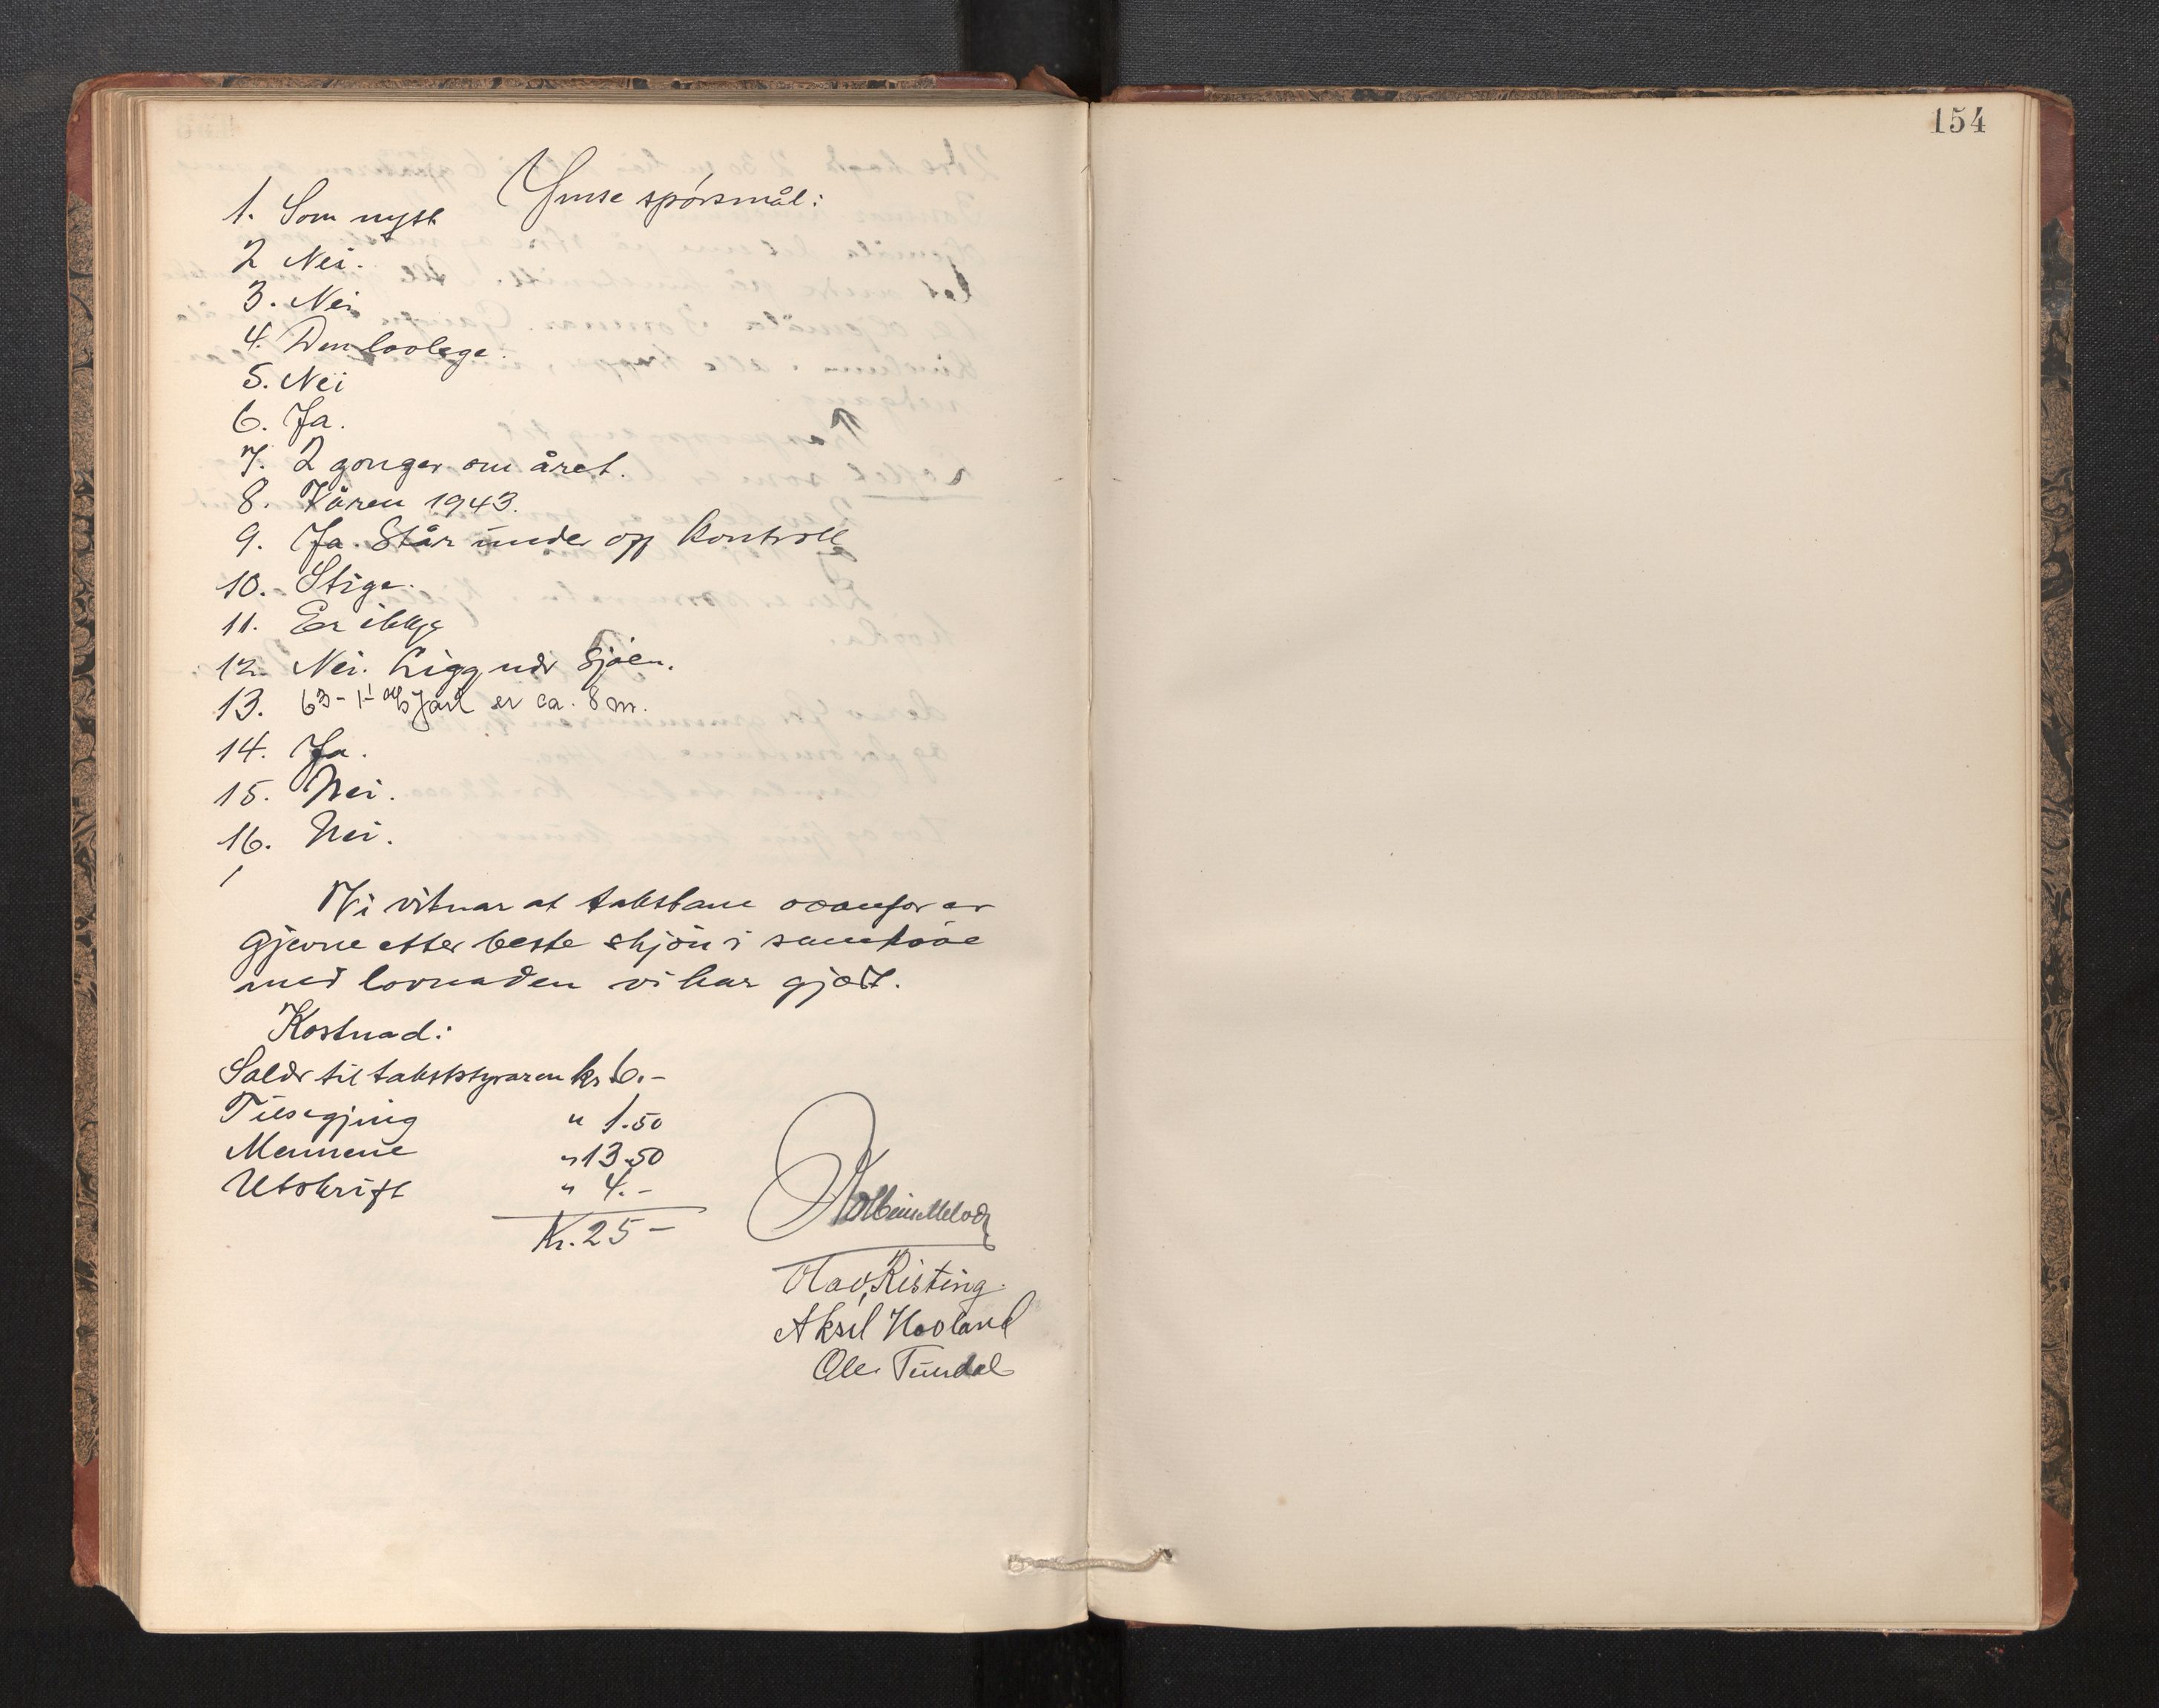 154
Ymse spørsmål:
1. Som nytt
2 Nei.
3. Nei
4. Den lovlege.
5. Nei
6. Ja.
7. 2 gonger om året.
8. Våren 1943.
9. Ja. Står under off kontroll
10. Stige.
11. Er ikkje
12. Nei. Ligg ved sjøen.
13. er ca. 8 m.
14. Ja.
15. Nei.
16. Nei.
Vi vitnar at takstane ovanfor er
gjevne etter beste skjøn i samhøve
med lovnaden vi har gjort.
Kostnad:
Saler til takststyraren kr 6.-
Tilsegjing " 1.50
Mennene " 13.50
Utskrift " 4.-
Kr. 25-
Olav Risting.
Aksel Hovland
Ole Tundal